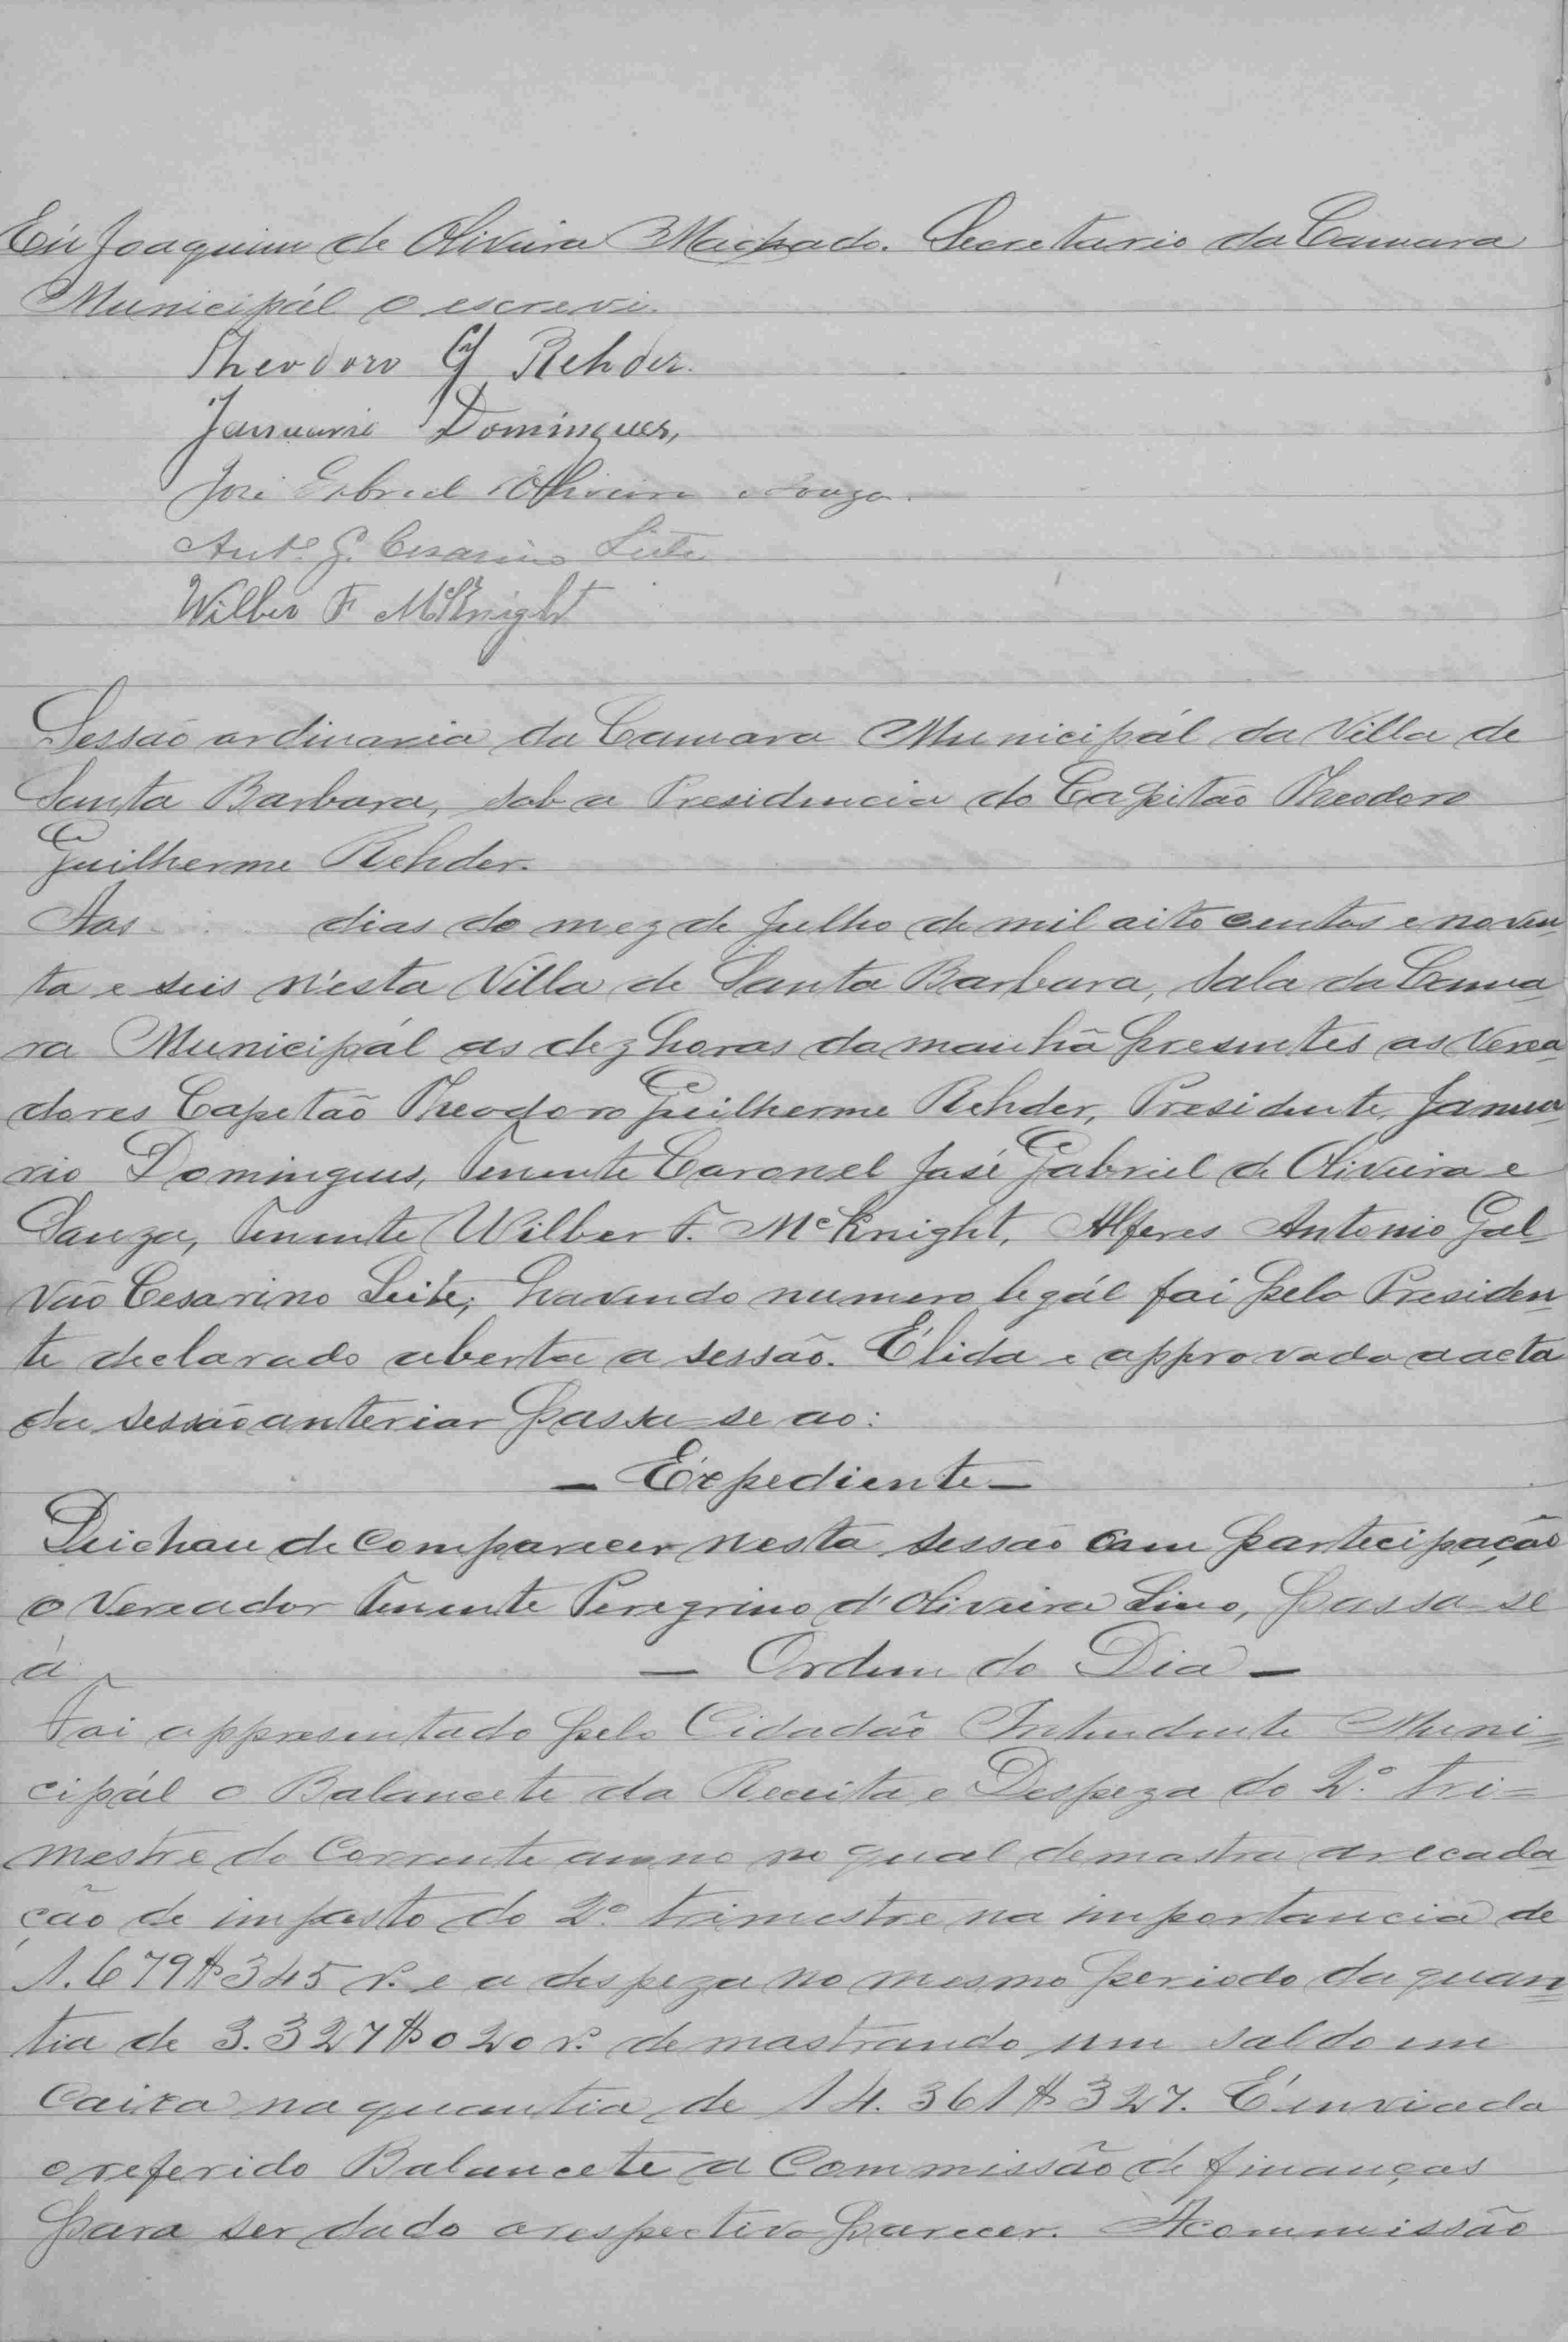 Eu Joaquim de Oliveira Machado. Secretario da Camara
Municipál o escrevi.
Theodoro G Rehder.
Januario Domingues,
José Gabriel Oliveira e Souza.
Antº G. Cesarino Leite
Wilber F McKnight
Sessão ordinaria da Camara Municipál da Villa de
Santa Barbara, sob a Presidencia do Capitão Theodoro
Guilherme Rehder.
Aos dias do mez de Julho de mil oito centos e noven
ta e seis n'esta Villa de Santa Barbara, Sala da Cama
ra Municipál as dez horas da manhã presentes os Verea
dores Capetão Theodoro Guilherme Rehder, Presidente, Janua
rio Domingues, Tenente Coronel José Gabriel de Oliveira e
Souza, Tenente Wilber F. McKnight, Alferes Antonio Gal
vão Cesarino Leite; havendo numero legál foi pelo Presiden
te declarado aberta a sessão. É lida e approvada a acta
da sessão anterior passa-se ao:
- Expediente -
Deichou de comparecer nesta sessão com partecipação
o Vereador Tenente Peregrino d'Oliveira Lino, passa-se
á
- Ordem do Dia -
Foi appresentado pelo Cidadão Intendente Muni=
cipál o Balancete da Receita e Despeza do 2º tri=
mestre do corrente anno no qual demostra arecada
ção de imposto do 2º trimestre na importancia de
1.679$345 rs. e a despeza no mesmo periodo da quan
tia de 3.327$020 rs. demostrando um saldo em
Caixa na quantia de 14.361$327. É inviada
o referido Balancete a Commissão de finanças
para ser dado o respectivo parecer. A commissão